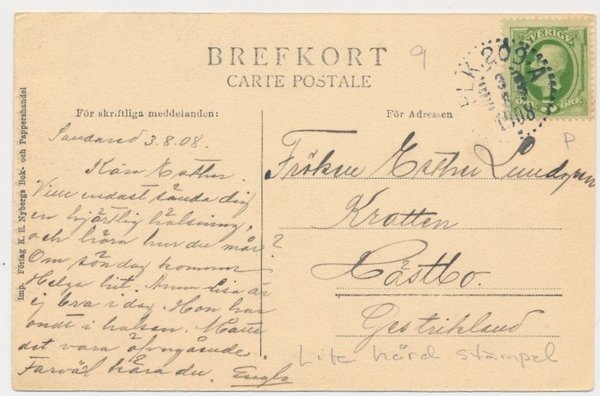 BREFKORT
CARTE POSTALE
9
SVERIGE
För skriftliga meddelanden:
För Adressen
Sandared 3.8.08.
Kära Esther.
Vill endast sända dig
en hjärtlig hälsning,
och höra hur du mår?
Om söndag kommer
Helga hit. Anna Lisa är
ej bra i dag. Hon har
ondt i halsen. Måtte
det vara öfvergående.
Farväl kära du. Engla
Fröken Esther Lundgren
Kratten
Hästbo.
Gestrikland
Lite hård stämpel
P
Imp. Förlag K. E. Nybergs Bok- och Pappershandel